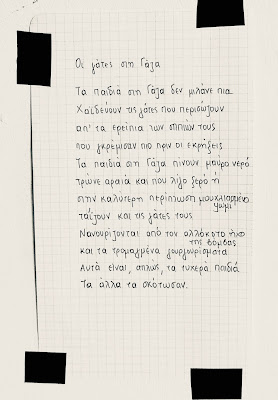 Οι γάτες στη Γάζα
Τα παιδιά στη Γάζα δεν μιλάνε πια
Χαϊδεύουν τις γάτες που περισώζουν
απ' τα ερείπια των σπιτιών τους
που γκρέμισαν πιο πριν οι εκρήξεις
Τα παιδιά στη Γάζα πίνουν μαύρο νερό
τρώνε αραιά και που λίγο ξερό ή
στην καλύτερη περίπτωση μουχλιασμένο
ψωμί
ταΐζουν και τις γάτες τους
Νανουρίζονται από τον αλλόκοτο ήχο
της βόμβας
και τα τρομαγμένα γουργουρίσματα
Αυτά είναι, απλώς, τα τυχερά παιδιά
Τα άλλα τα σκότωσαν.